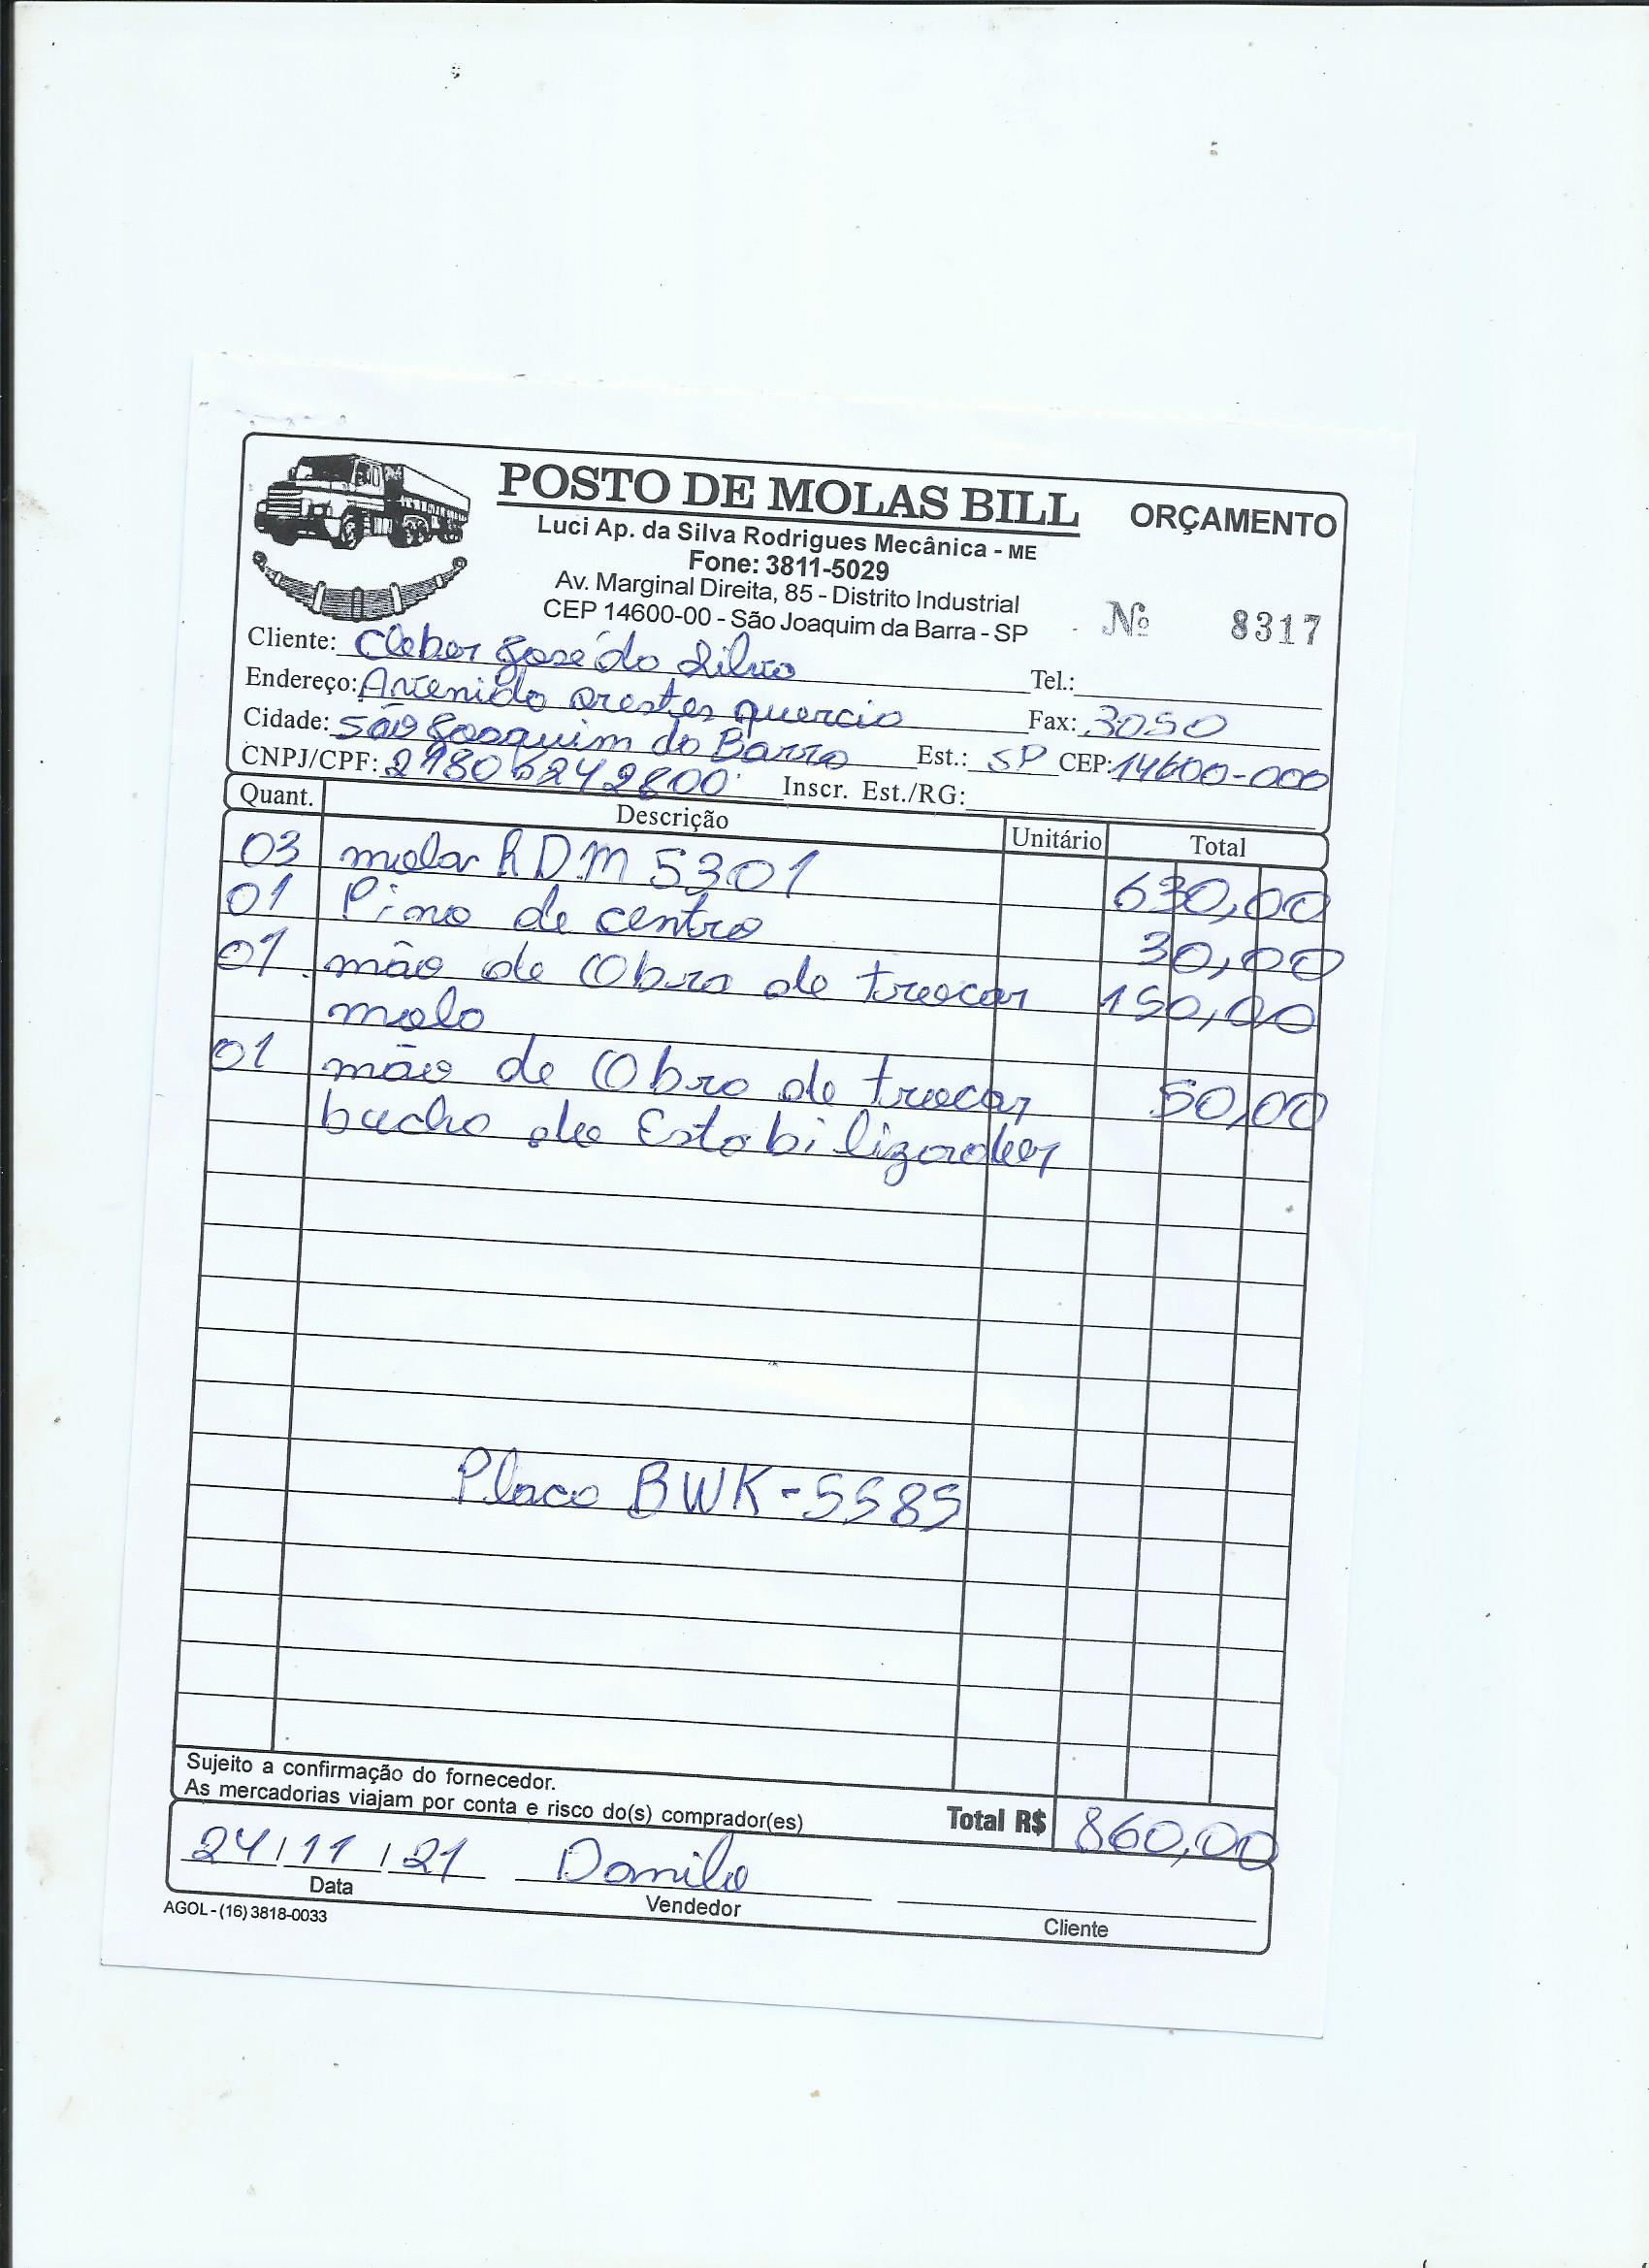 POSTO DE MOLAS BILL
ORÇAMENTO
Luci Ap. da Silva Rodrigues Mecânica - ME
Fone: 3811-5029
Av. Marginal Direita, 85 - Distrito Industrial
CEP 14600-00 - São Joaquim da Barra - SP
Nº 8317
Cliente: Cleber José da Silva Tel.:
Endereço: Avenida orestes quercia Fax: 3050
Cidade: São Joaquim da Barra Est.: SP CEP: 14600-000
CNPJ/CPF: Inscr. Est./RG:
Quant. Descrição Unitário Total
03 molar RDM 5301 630,00
01 Pino de centro 30,00
01 mão de Obra de trocar 150,00
mola
01 mão de Obra de trocar 50,00
bucha de Estabilizador
Placa BWK-5585
Sujeito a confirmação do fornecedor.
As mercadorias viajam por conta e risco do(s) comprador(es)
Total R$ 860,00
24/11/21 Danilo
Data Vendedor Cliente
AGOL - (16) 3818-0033